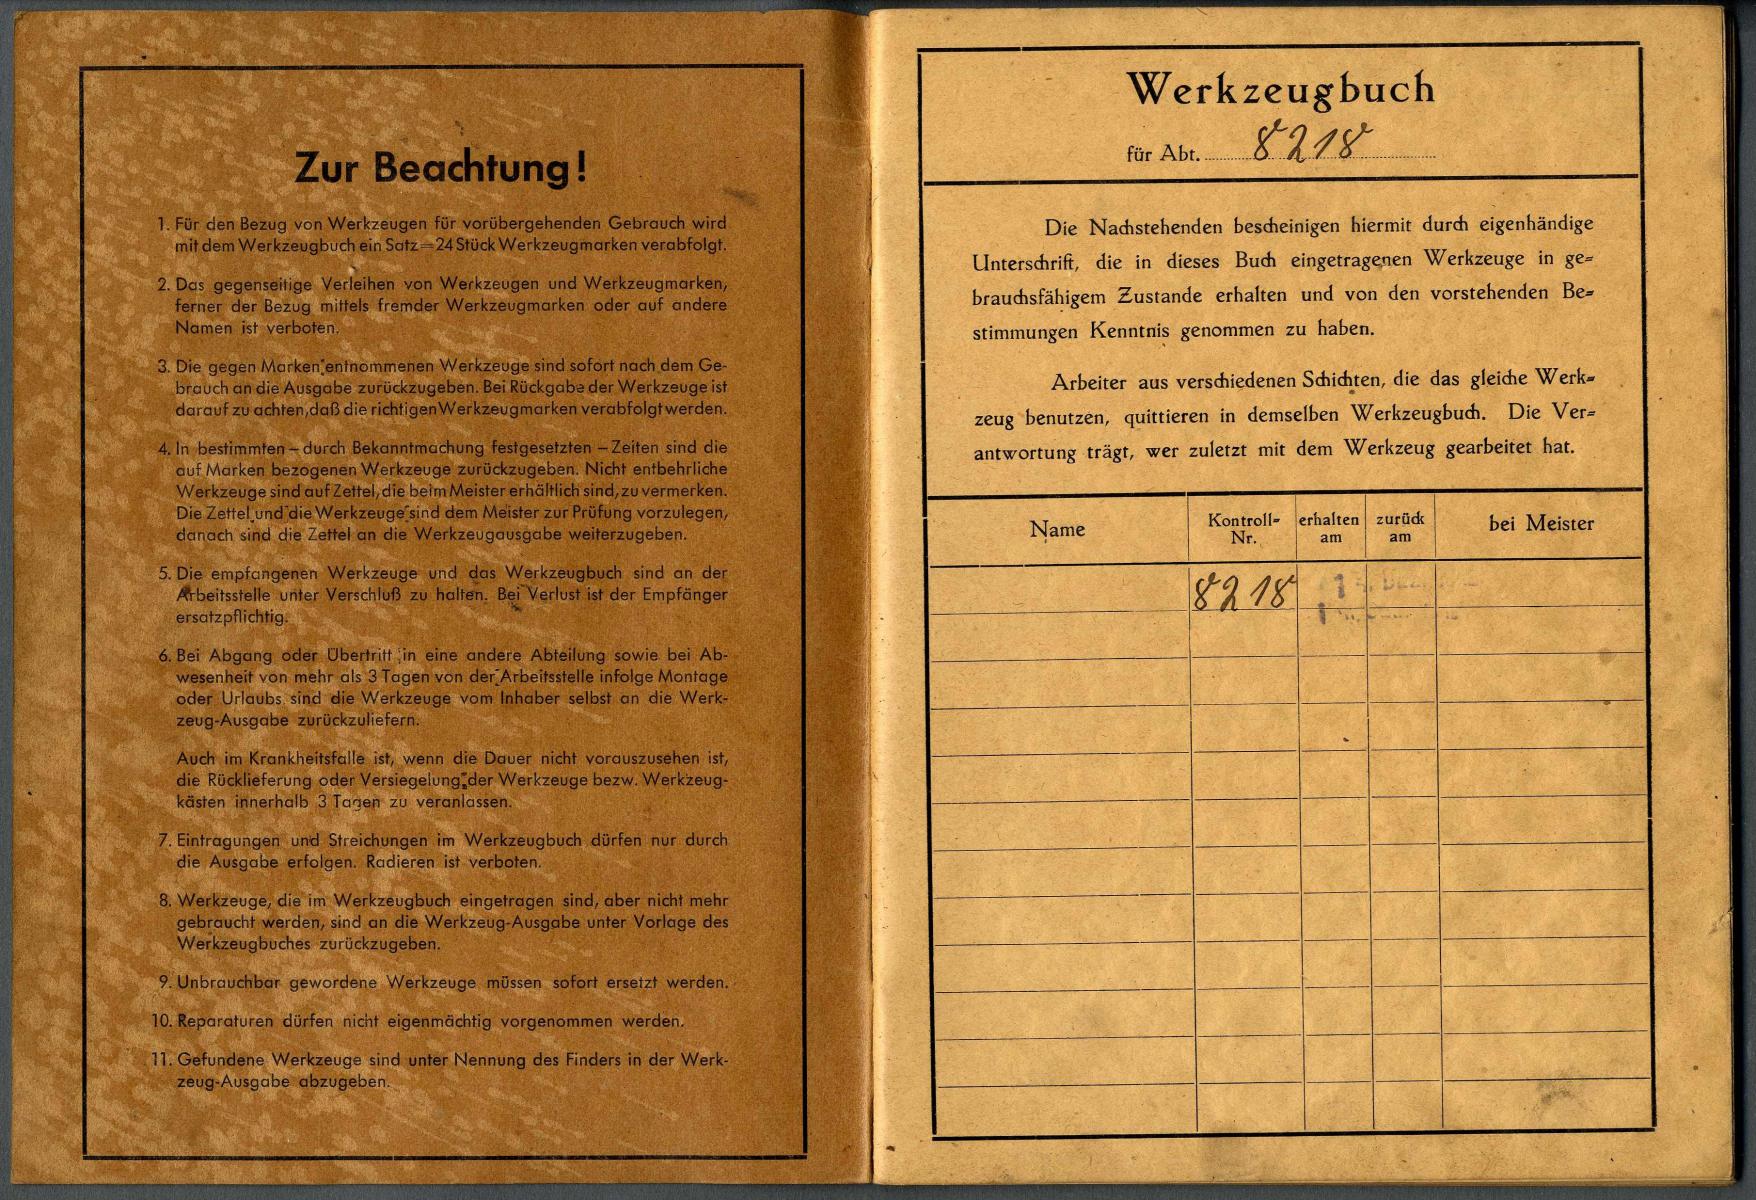 Zur Beachtung!
1. Für den Bezug von Werkzeugen für vorübergehenden Gebrauch wird
mit dem Werkzeugbuch ein Satz=24 Stück Werkzeugmarken verabfolgt.
2. Das gegenseitige Verleihen von Werkzeugen und Werkzeugmarken,
ferner der Bezug mittels fremder Werkzeugmarken oder auf andere
Namen ist verboten.
3. Die gegen Marken entnommenen Werkzeuge sind sofort nach dem Ge-
brauch an die Ausgabe zurückzugeben. Bei Rückgabe der Werkzeuge ist
darauf zu achten, daß die richtigen Werkzeugmarken verabfolgt werden.
4. In bestimmten – durch Bekanntmachung festgesetzten – Zeiten sind die
auf Marken bezogenen Werkzeuge zurückzugeben. Nicht entbehrliche
Werkzeuge sind auf Zettel, die beim Meister erhältlich sind, zu vermerken.
Die Zettel und die Werkzeuge sind dem Meister zur Prüfung vorzulegen,
danach sind die Zettel an die Werkzeugausgabe weiterzugeben.
5. Die empfangenen Werkzeuge und das Werkzeugbuch sind an der
Arbeitsstelle unter Verschluß zu halten. Bei Verlust ist der Empfänger
ersatzpflichtig.
6. Bei Abgang oder Übertritt in eine andere Abteilung sowie bei Ab-
wesenheit von mehr als 3 Tagen von der Arbeitsstelle infolge Montage
oder Urlaubs sind die Werkzeuge vom Inhaber selbst an die Werk-
zeug-Ausgabe zurückzuliefern.
Auch im Krankheitsfalle ist, wenn die Dauer nicht vorauszusehen ist,
die Rücklieferung oder Versiegelung der Werkzeuge bezw. Werkzeug-
kästen innerhalb 3 Tagen zu veranlassen.
7. Eintragungen und Streichungen im Werkzeugbuch dürfen nur durch
die Ausgabe erfolgen. Radieren ist verboten.
8. Werkzeuge, die im Werkzeugbuch eingetragen sind, aber nicht mehr
gebraucht werden, sind an die Werkzeug-Ausgabe unter Vorlage des
Werkzeugbuches zurückzugeben.
9. Unbrauchbar gewordene Werkzeuge müssen sofort ersetzt werden.
10. Reparaturen dürfen nicht eigenmächtig vorgenommen werden.
11. Gefundene Werkzeuge sind unter Nennung des Finders in der Werk-
zeug-Ausgabe abzugeben.
Werkzeugbuch
für Abt. 8218
Die Nachstehenden bescheinigen hiermit durch eigenhändige
Unterschrift, die in dieses Buch eingetragenen Werkzeuge in ge=
brauchsfähigem Zustande erhalten und von den vorstehenden Be=
stimmungen Kenntnis genommen zu haben.
Arbeiter aus verschiedenen Schichten, die das gleiche Werk=
zeug benutzen, quittieren in demselben Werkzeugbuch. Die Ver=
antwortung trägt, wer zuletzt mit dem Werkzeug gearbeitet hat.
Name Kontroll= Nr. erhalten am zurück am bei Meister
8218